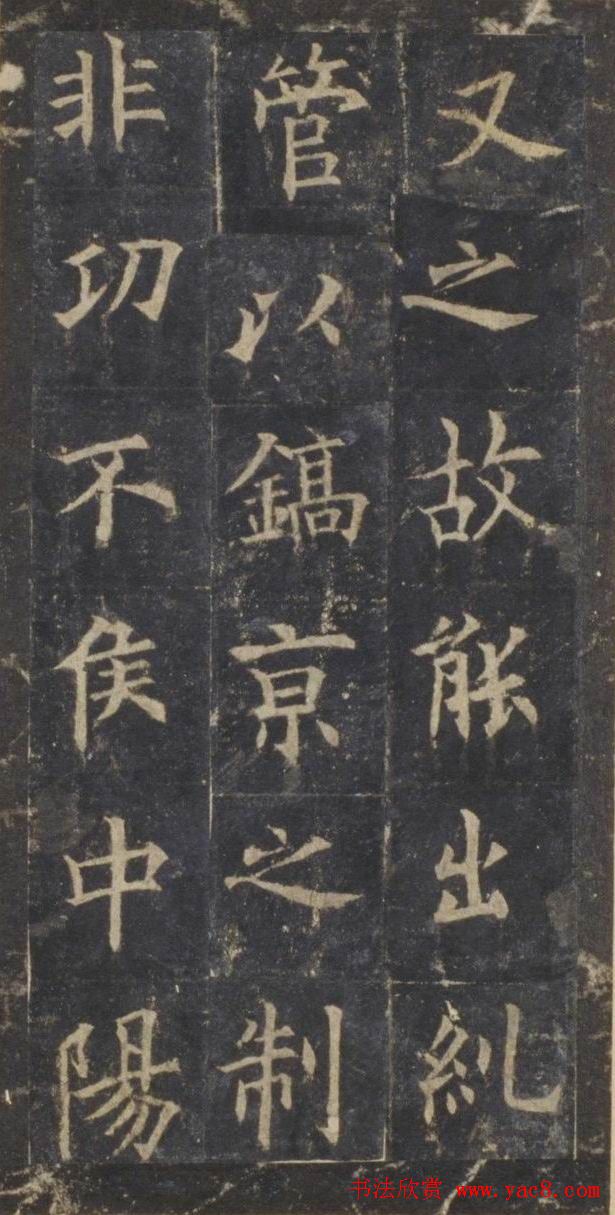 又之故能出糺
管以鎬京之制
非切不侯中陽
书法欣赏 www.yac8.com